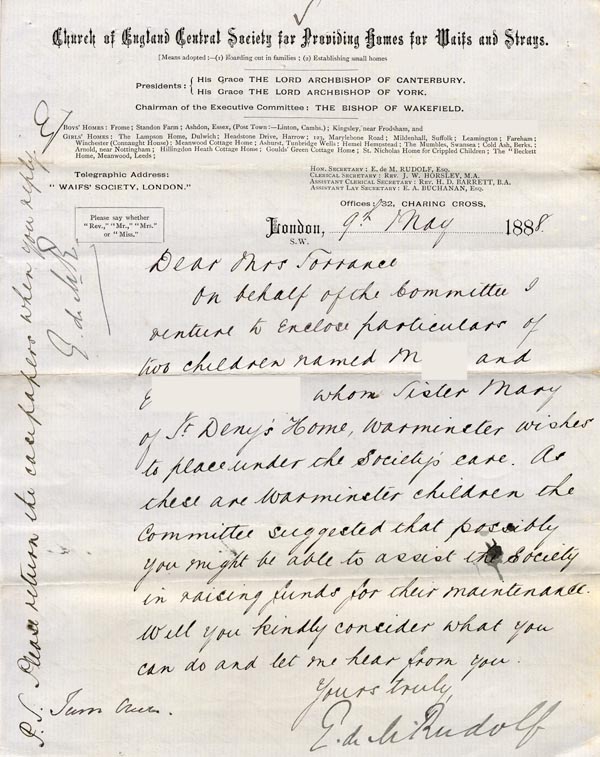 Church of England Central Society for Providing Homes for Waifs and Strays.
[Means adopted :—(1) Boarding out in families ; (2) Establishing small homes
Presidents : { His Grace THE LORD ARCHBISHOP OF CANTERBURY.
His Grace THE LORD ARCHBISHOP OF YORK.
Chairman of the Executive Committee : THE BISHOP OF WAKEFIELD.
BOYS' HOMES : Frome ; Standon Farm ; Ashdon, Essex, (Post Town :—Linton, Cambs.) ; Kingsley, near Frodsham, and
GIRLS' HOMES : The Lampson Home, Dulwich ; Headstone Drive, Harrow ; 123, Marylebone Road ; Mildenhall, Suffolk ; Leamington ; Fareham ;
Winchester (Connaught House) ; Meanwood Cottage Home ; Ashurst, Tunbridge Wells ; Hemel Hempstead ; The Mumbles, Swansea ; Cold Ash, Berks. ;
Arnold, near Nottingham ; Hillingdon Heath Cottage Home ; Goulds' Green Cottage Home ; St. Nicholas Home for Crippled Children ; The "Beckett
Home, Meanwood, Leeds ;
Telegraphic Address :
"WAIFS' SOCIETY, LONDON."
HON. SECRETARY : E. DE M. RUDOLF, ESQ.
CLERICAL SECRETARY : REV. J. W. HORSLEY, M.A.
ASSISTANT CLERICAL SECRETARY : REV. H. D. BARRETT, B.A.
ASSISTANT LAY SECRETARY : E. A. BUCHANAN, ESQ.
OFFICES : 32, CHARING CROSS,
Please say whether
"Rev.," "Mr.," "Mrs."
or "Miss."
London, 9th May 1888.
S.W.
Dear Mrs Torrance
On behalf of the Committee I
venture to enclose particulars of
two children named M and
E whom Sister Mary
of St Deny's Home, Warminster wishes
to place under the Society's care. As
these are Warminster children the
Committee suggested that possibly
you might be able to assist the Society
in raising funds for their maintenance.
Will you kindly consider what you
can do and let me hear from you.
Yours truly,
E. de M. Rudolf
P.S. Turn Over.
Please return the case papers when you reply
E. de M. R.